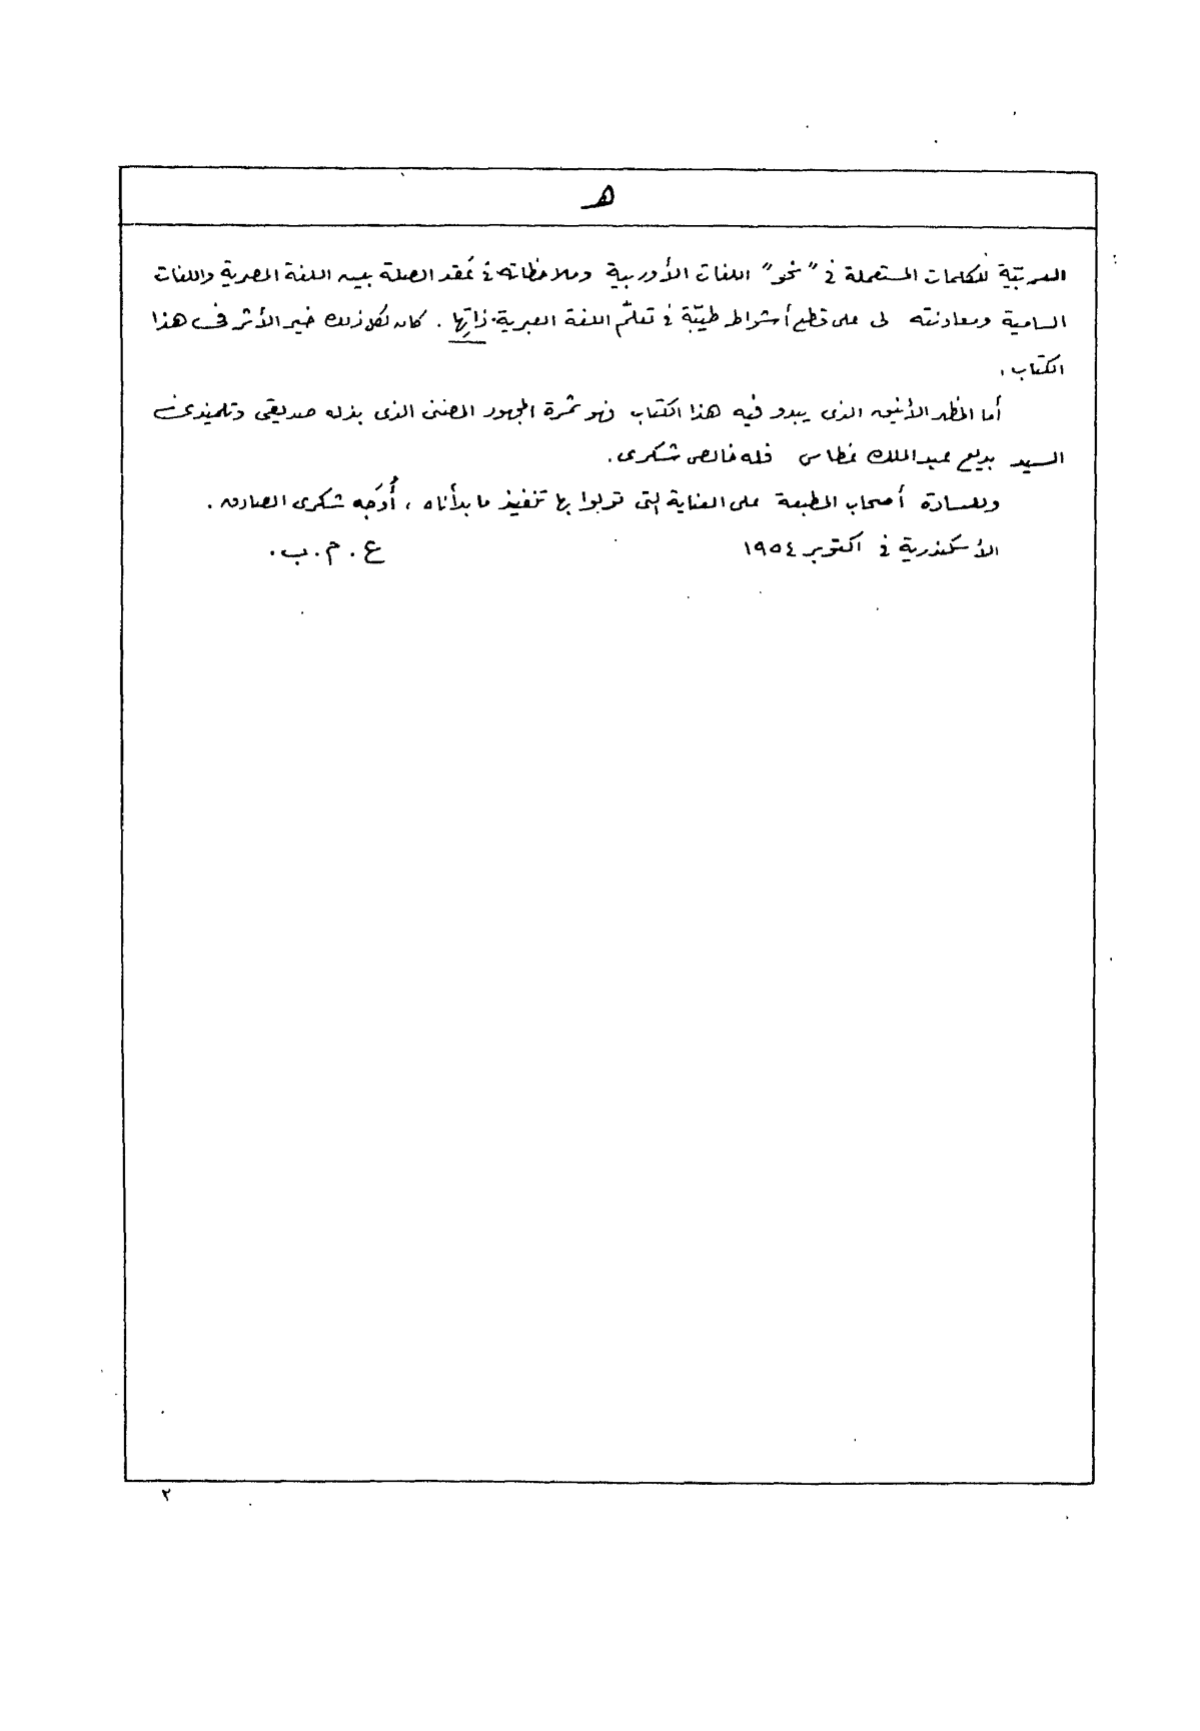 هـ
العربيّة للكلمات المستعملة فى "نحو" اللغات الأوربية وملاحظاته فى عَقد الصلة بين اللغة المصرية واللغات
السامية ومعاونته لى على قطع أشواط طيّبة فى تعلّم اللغة العبرية ذاتِها . كان لكل ذلك خير الأثر فى هذا
الكتاب .
أما المظهر الأنيق الذى يبدو فيه هذا الكتاب فهو ثمرة المجهود المضنى الذى بذله صديقى وتلميذى
السيد بديع عبد الملك غطاس فله خالص شكرى .
وللسادة أصحاب المطبعة على العناية التى قوبلوا بها تنفيذ ما بدأناه ، أُوَجه شكرى الصادق .
الأسكندرية فى اكتوبر ١٩٥٤ ع . م . ب .
٢